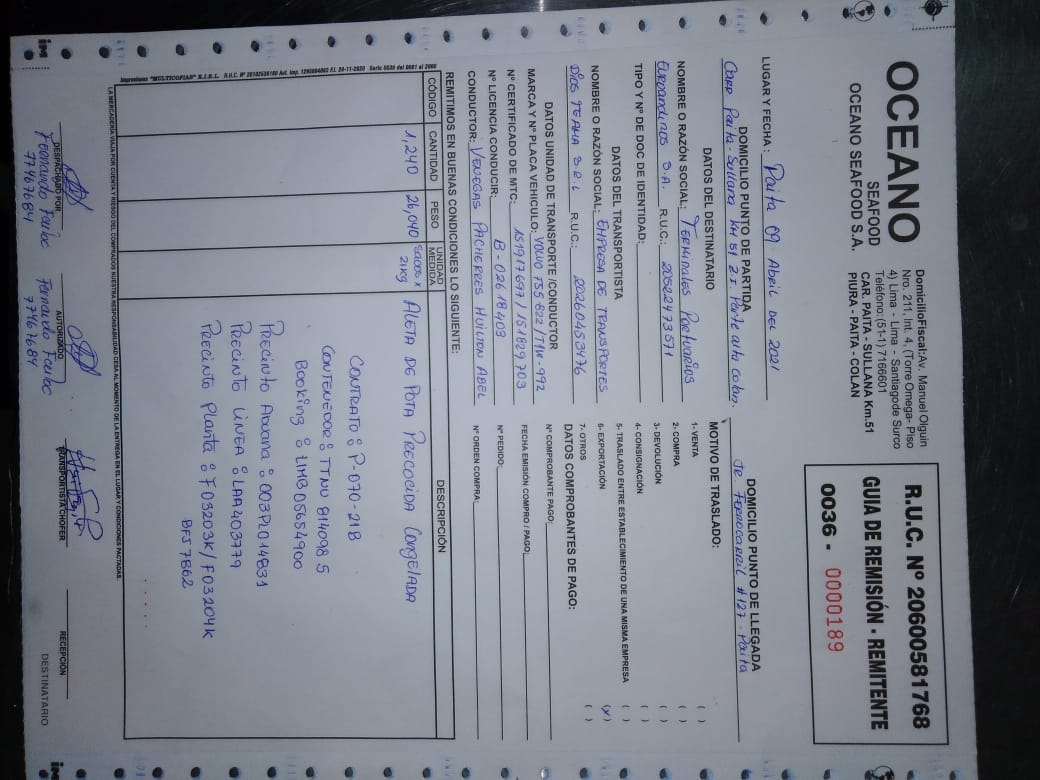 OCEANO
SEAFOOD
OCEANO SEAFOOD S.A.
DomicilioFiscal:Av. Manuel Olguin
Nro. 211, Int. 4, (Torre Omega- Piso
4) Lima - Lima - Santiagode Surco
Teléfono:(51-1) 7166601
CAR. PAITA - SULLANA Km.51
PIURA - PAITA - COLAN
R.U.C. Nº 20600581768
GUIA DE REMISIÓN - REMITENTE
0036 - 0000189
LUGAR Y FECHA: Paita 09 Abril DEL 2021
DOMICILIO PUNTO DE PARTIDA
Carr Paita-Sullana KM 51 ZI. Parte alta colan.
DOMICILIO PUNTO DE LLEGADA
Jr. Ferrocarril #127 - Paita
DATOS DEL DESTINATARIO
NOMBRE O RAZÓN SOCIAL: Terminales Portuarios
Euroandinos S.A. R.U.C.: 20522473571
TIPO Y Nº DE DOC DE IDENTIDAD:
DATOS DEL TRANSPORTISTA
NOMBRE O RAZÓN SOCIAL: EMPRESA DE TRANSPORTES
S.R.L R.U.C.: 20260453476
DATOS UNIDAD DE TRANSPORTE /CONDUCTOR
MARCA Y Nº PLACA VEHICULO: VOLVO
Nº CERTIFICADO DE MTC: 151917697 / 151829703
Nº LICENCIA CONDUCIR: B-02618403
CONDUCTOR: VENEGAS PACHERRES ABEL
MOTIVO DE TRASLADO:
1- VENTA ( )
2- COMPRA ( )
3- DEVOLUCIÓN ( )
4- CONSIGNACIÓN ( )
5- TRASLADO ENTRE ESTABLECIMIENTO DE UNA MISMA EMPRESA ( )
6- EXPORTACIÓN (x)
7- OTROS ( )
DATOS COMPROBANTES DE PAGO:
Nº COMPROBANTE PAGO:
FECHA EMISIÓN COMPRO / PAGO
Nº PEDIDO:
Nº ORDEN COMPRA:
REMITIMOS EN BUENAS CONDICIONES LO SIGUIENTE:
CÓDIGO CANTIDAD PESO UNIDAD MEDIDA DESCRIPCIÓN
1,240 26,040 sacos x 21Kg ALETA DE POTA PRECOCIDA CONGELADA
CONTRATO: P-070-21B
CONTENEDOR: TTNU 814098 5
Booking: LIMB05654900
Precinto Aduana: 003PL014831
Precinto LINEA: LAA403779
Precinto Planta: F03203K/F03204K
BFJ7862
Impresiones "MULTICOPIAS" E.I.R.L. Serie 0036 del 0001 al 2000
LA MERCADERÍA VIAJA POR CUENTA Y RIESGO DEL COMPRADOR NUESTRA RESPONSABILIDAD CESA AL MOMENTO DE LA ENTREGA EN EL LUGAR Y CONDICIONES PACTADAS.
DESPACHADO POR AUTORIZADO TRANSPORTISTA CHOFER RECEPCIÓN
Fernando Fernando
77467684 77467684
DESTINATARIO